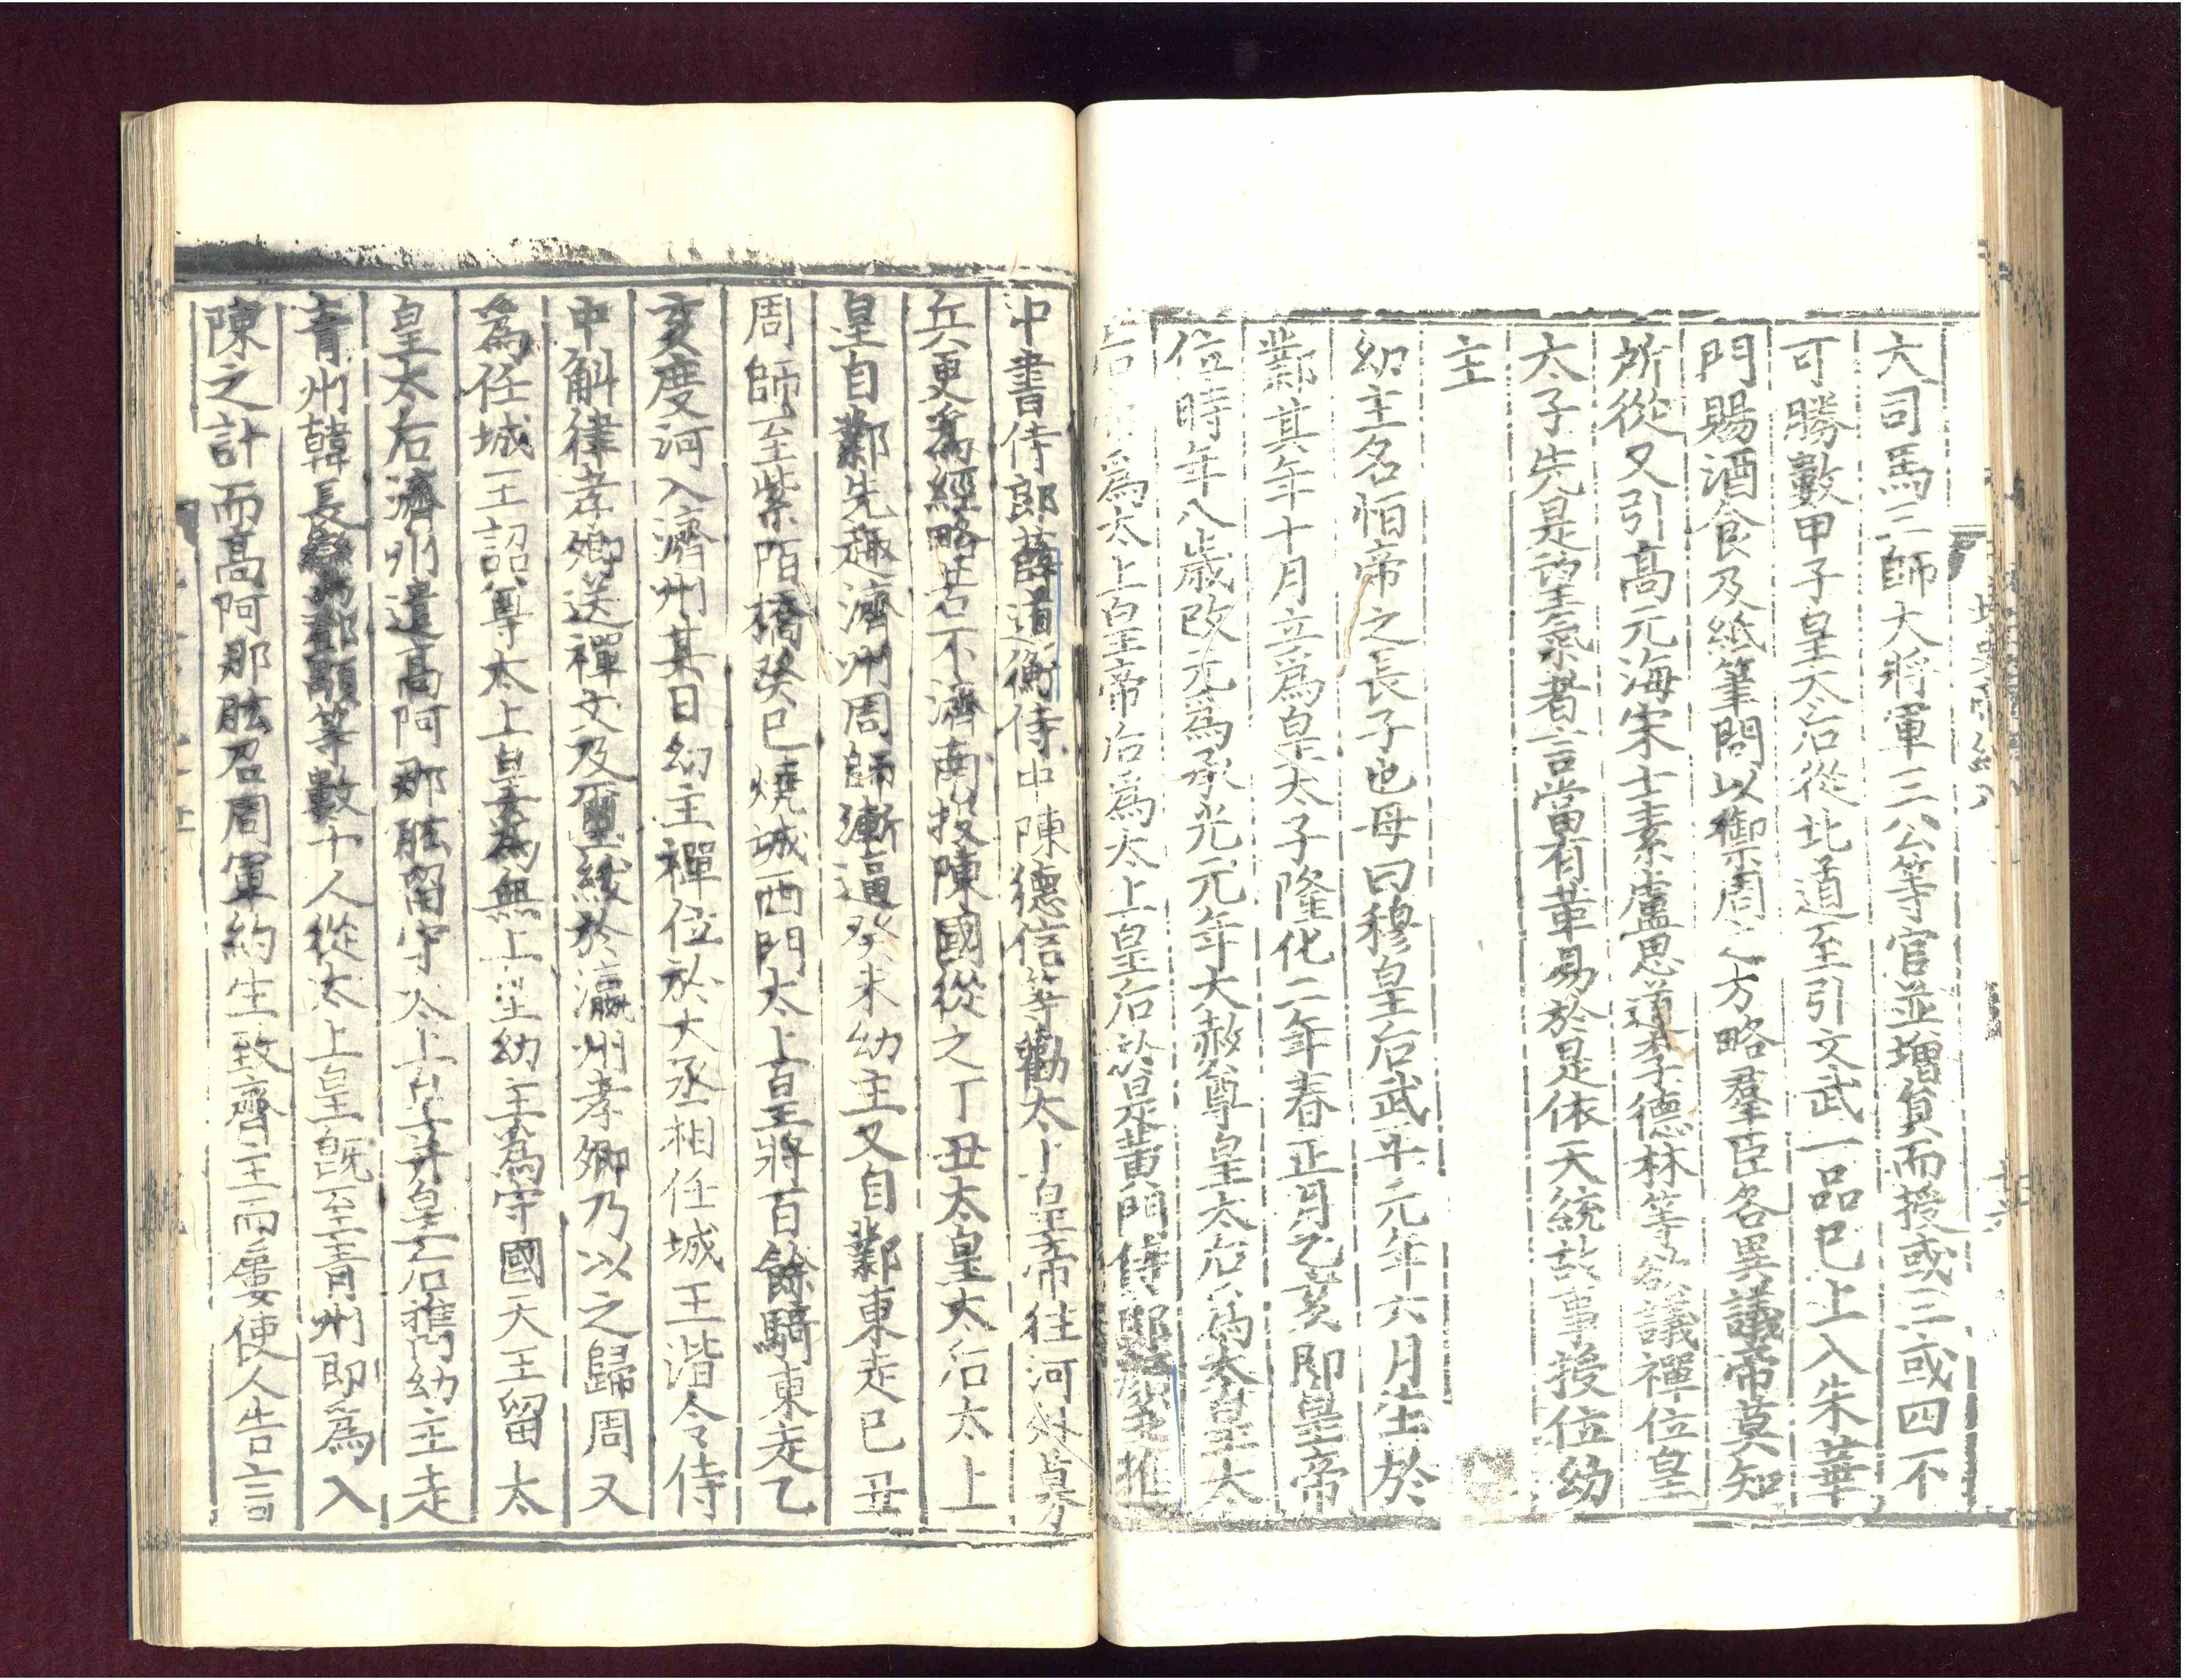 大司馬三師大將軍三公等官並增貟而授或三或四不
可勝數甲子皇太后從北道至引文武一品已上入朱華
門賜酒食及紙筆問以禦周之方略羣臣各異議帝莫知
所從又引高元海宋士素盧思道李德林等欲議禪位皇
太子先是望氣者言當有革易於是依天統故事授位幼
主
幼主名恒帝之長子也母曰穆皇后武平元年六月生於
鄴其年十月立爲皇太子隆化二年春正月乙亥即皇帝
位時年八歲改元爲承光元年大赦尊皇太后爲太皇太
后 爲太上皇帝后爲太上皇后於是黄門侍郎顔之推
中書侍郎薛道衡侍中陳德信等勸太上皇帝往河外募
兵更爲經略若不濟南投陳國從之丁丑太皇太后太上
皇自鄴先趣濟州周師漸逼癸未幼主又自鄴東走已丑
周師至紫陌橋癸巳燒城西門太上皇將百餘騎東走乙
亥度河入濟州其日幼主禪位於大丞相任城王湝令侍
中斛律孝卿送禪文及璽紱於瀛州孝卿乃以之歸周又
爲任城王詔尊太上皇爲無上皇幼主爲守國天王留太
皇太后濟州遣高阿那肱留守太上皇并皇后攜幼主走
青州韓長鸞鄧顒等數十人從太上皇旣至青州即爲入
陳之計而高阿那肱召周軍約生致齊主而屢使人告言